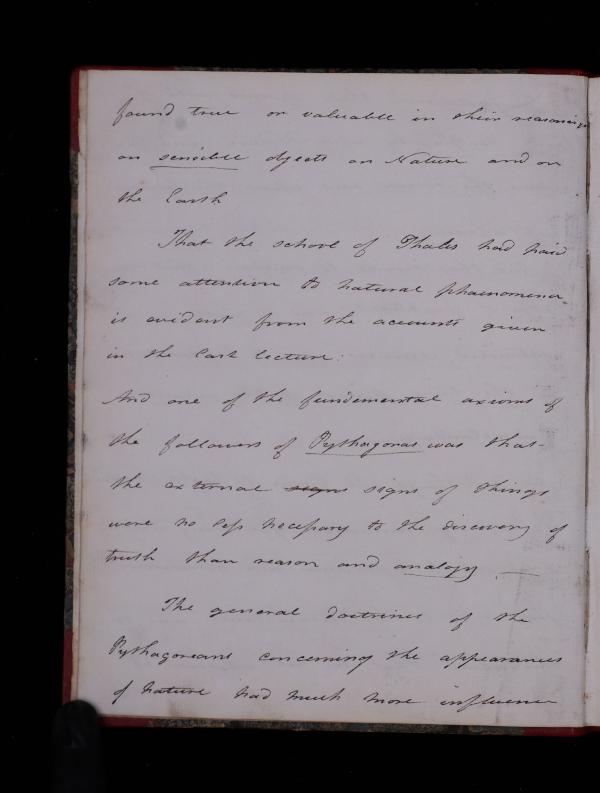 found true or valuable in their reasonings
on sensible objects on Nature and on
the Earth
That the school of Thales had paid
some attention to natural phaenomena
is evident from the accounts given
in the last lecture.
And one of the fundemental axioms of
the followers of Pythagoras was that
the external signs signs of things
were no less necessary to the discovery of
truth than reason and analogy. —
The general doctrines of the
Pythagoreans concerning the appearances
of nature had much more influence